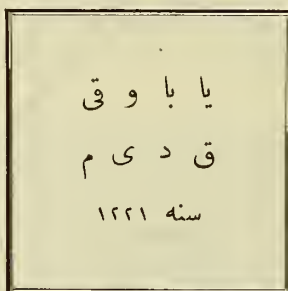 يا با و قى
ق د ى م
سنه ١٢٢١